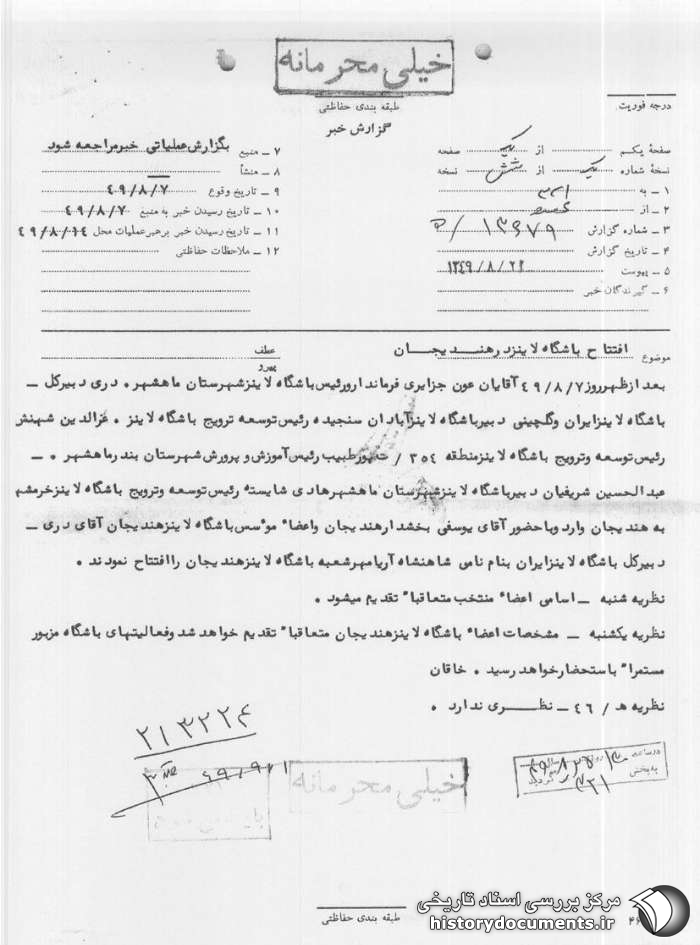 خیلی محرمانه
طبقه بندی حفاظتی
گزارش خبر
درجه فوریت
صفحهٔ یکم از یک صفحه
نسخهٔ شماره یک از شش نسخه
۱ ـ به ۳۳۱
۲ ـ از
۳ ـ شماره گزارش
۴ ـ تاریخ گزارش
۵ ـ پیوست ۱۳۴۹/۸/۲۱
۶ ـ گیرندگان خبر
۷ ـ منبع بگزارش عملیاتی خبر مراجعه شود
۸ ـ منشأ
۹ ـ تاریخ وقوع ۴۹/۸/۷
۱۰ ـ تاریخ رسیدن خبر به منبع ۴۹/۸/۷
۱۱ ـ تاریخ رسیدن خبر برهبر عملیات محل ۴۹/۸/۱۴
۱۲ ـ ملاحظات حفاظتی
موضوع افتتاح باشگاه لاینز در هندیجان
عطف
پیرو
بعد از ظهر روز ۴۹/۸/۷ آقایان عون جزایری فرماندار و رئیس باشگاه لاینز شهرستان ماهشهر . دری دبیرکل ـ
باشگاه لاینز ایران و گلچینی دبیر باشگاه لاینز آبادان سنجیده رئیس توسعه ترویج باشگاه لاینز . عزالدین شهنش
رئیس توسعه و ترویج باشگاه لاینز منطقه ۳۵۴ / طبیب رئیس آموزش و پرورش شهرستان بندر ماهشهر . ـ
عبدالحسین شریفیان دبیر باشگاه لاینز شهرستان ماهشهر هادی شایسته رئیس توسعه و ترویج باشگاه لاینز خرمشه
به هندیجان وارد و با حضور آقای یوسفی بخشدار هندیجان و اعضاء موسس باشگاه لاینز هندیجان آقای دری ـ
دبیرکل باشگاه لاینز ایران بنام نامی شاهنشاه آریامهر شعبه باشگاه لاینز هندیجان را افتتاح نمودند .
نظریه شنبه ـ اسامی اعضاء منتخب متعاقبا" تقدیم میشود .
نظریه یکشنبه ـ مشخصات اعضاء باشگاه لاینز هندیجان متعاقبا" تقدیم خواهد شد و فعالیتهای باشگاه مزبور
مستمرا" باستحضار خواهد رسید . خاقان
نظریه هـ / ۴۶ ـ نظری ندارد .
۲۱۳۲۲۴
خیلی محرمانه
در ساعت
به بخش ۳۲۱
طبقه بندی حفاظتی
۴۶
مرکز بررسی اسناد تاریخی
historydocuments.ir